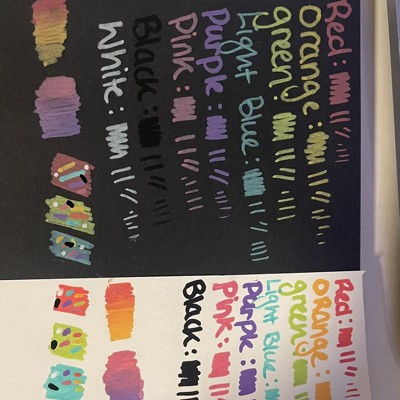 Red:
Orange:
green:
Light Blue:
Purple:
Pink:
Black:
White:
Red:
Orange:
green:
Light Blue:
Purple:
Pink:
Black: